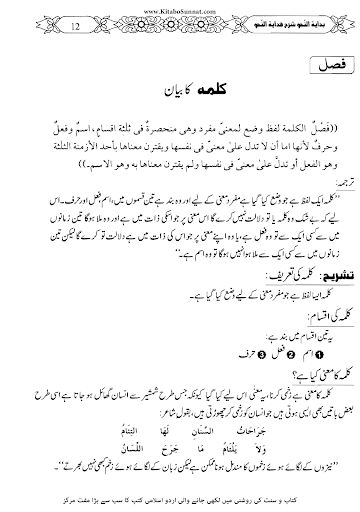 www.KitaboSunnat.com
بداية النحو شرح هداية النحو
12
فصل
کلمه کا بیان
((فَصْلٌ الكلمة لفظ وضع لمعنىً مفرد وهى منحصرة فى ثلثة اقسام، اسم وفعلٌ
وحرفٌ لأنها اما أن لا تدل على معنىً فى نفسها وهو الحرف أو تدل على معنىً فى نفسها ويقترن معناها بأحد الأزمنة الثلثة
وهو الفعل أو تدلَّ على معنىً فى نفسها ولم يقترن معناها به وهو الاسم.))
ترجمہ:
’’کلمہ ایک لفظ ہے جو وضع کیا گیا ہے مفرد معنی کے لیے اور وہ بند ہے تین قسموں میں، اسم، فعل اور حرف۔ اس
لیے کہ بے شک وہ کلمہ یا تو دلالت نہیں کرے گا اس معنی پر جو اسکی ذات میں ہے اور وہ ملا ہوگا تین زمانوں
میں سے کسی ایک سے تو وہ فعل ہے، یا وہ اپنے معنی پر جو اس کی ذات میں ہے دلالت تو کرے گا لیکن تین
زمانوں میں سے کسی ایک سے ملا ہوا نہیں ہوگا تو وہ اسم ہے۔‘‘
تشریح: کلمہ کی تعریف:
کلمہ ایسا لفظ ہے جو مفرد معنی کے لیے وضع کیا گیا ہے۔
کلمہ کی اقسام:
یہ تین اقسام میں بند ہے:
❶ اسم ❷ فعل ❸ حرف
کلمہ کا معنی کیا ہے؟
کلمہ کا معنی ہے زخمی کرنا، یہ معنی اس لیے کیا گیا کیونکہ جس طرح شمشیر سے انسان گھائل ہو جاتا ہے اسی طرح
بعض باتیں بھی ایسی ہوتی ہیں جو انسان کو زخمی کر چھوڑتی ہیں، بقول شاعر:
جَرَاحَاتُ السِّنَانِ لَهَا التِئَامُ
وَلَا يَلْتَامُ مَا جَرَحَ اللِّسَانُ
’’نیزوں کے لگائے ہوئے زخموں کا مندمل ہونا ممکن ہے لیکن زبان کے لگائے ہوئے زخم کبھی نہیں بھرتے‘‘۔
کتاب و سنت کی روشنی میں لکھی جانے والی اردو اسلامی کتب کا سب سے بڑا مفت مرکز